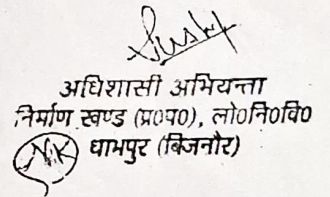 अधिशासी अभियन्ता
निर्माण खण्ड (प्र०प०), लो०नि०वि०
धामपुर (बिजनौर)